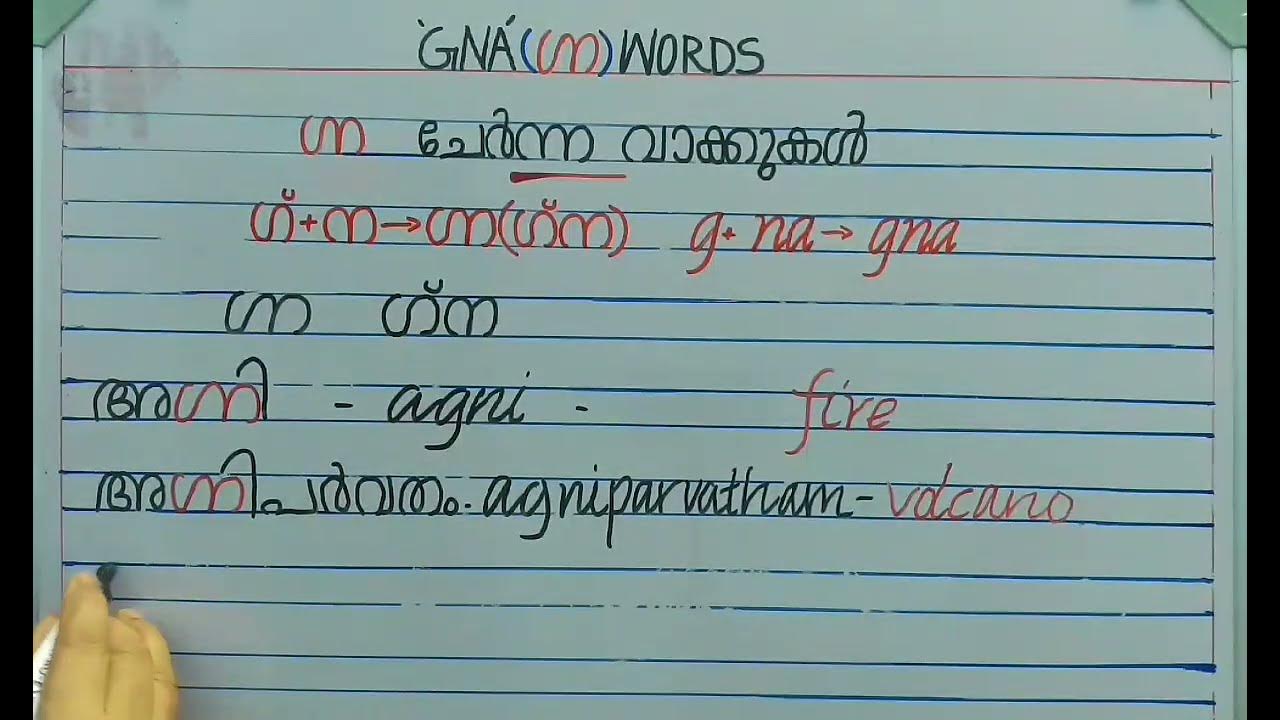 'GNA'(ഗ്ന)WORDS
ഗ്ന ചേർന്ന വാക്കുകൾ
ഗ്+ന→ഗ്ന(ഗ്ന) g+na→gna
ഗ്ന ഗ്ന
അഗ്നി - agni - fire
അഗ്നിപർവതം. agniparvatham-volcano